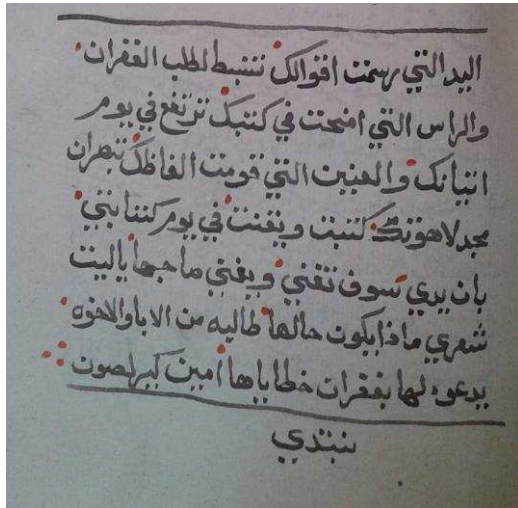 اليد التي رسمت اقوالك تنبسط لطلب الغفران
والراس التي انحنت في كتبك ترتفع في يوم
اتيانك والعينين التي قومت الفاظك تبصران
مجد لاهوتك كتبت ويقنت في يوم كتابتي
بان يدي سوف تفني ويفني صاحبها ياليت
شعري ماذا يكون حالها طالبه من الابا والاخوه
يدعو لها بغفران خطاياها امين كيرليصون
نبتدي